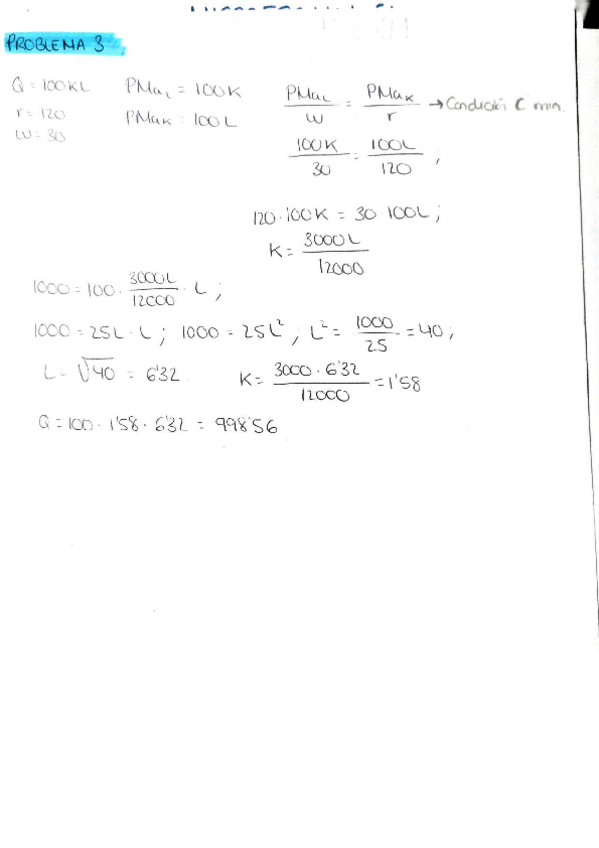 PROBLEMA 3
Q = 100KL PMaL = 100K PMaL/w = PMaK/r → Condición C min.
r = 120 PMaK = 100L
w = 30
100K/30 = 100L/120 ;
120·100K = 30·100L ;
K = 3000L/12000
1000 = 100 · 3000L/12000 · L ;
1000 = 25L · L ; 1000 = 25L² , L² = 1000/25 = 40 ;
L = √40 = 6'32 K = 3000·6'32/12000 = 1'58
Q = 100 · 1'58 · 6'32 = 998'56